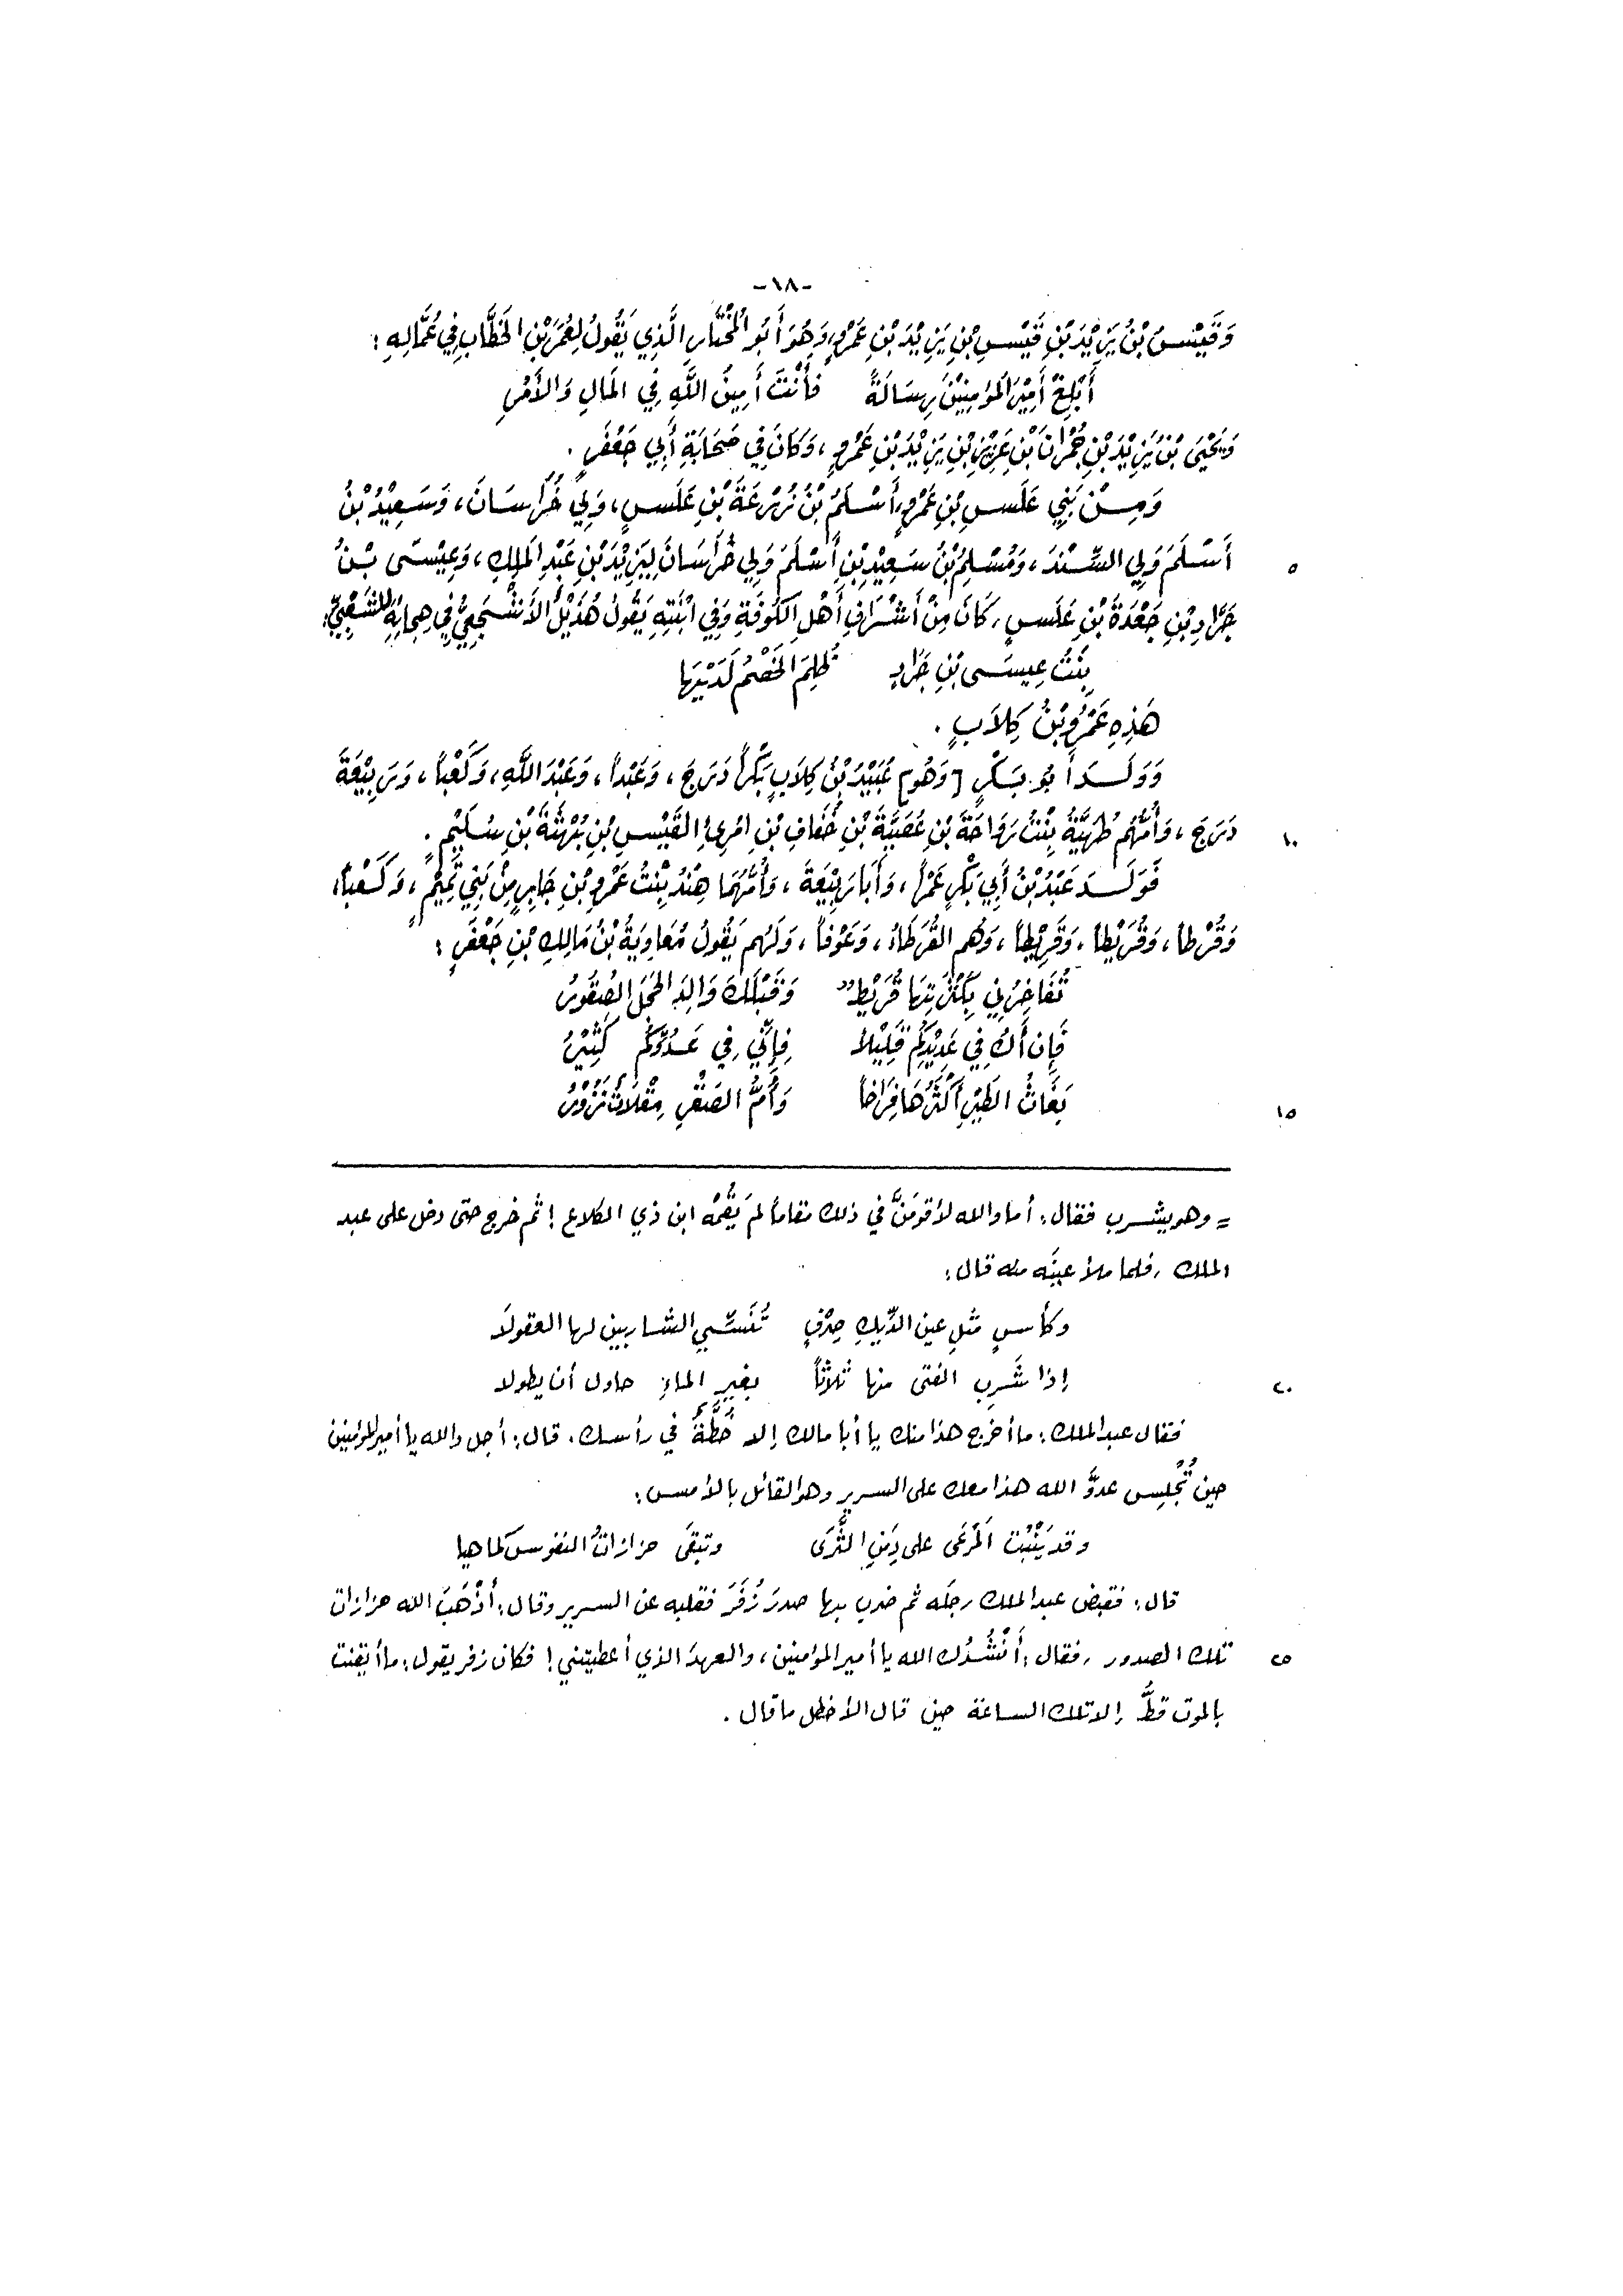 -١٨-
وَقَيْسُ بْنُ يَزِيْدَ بْنِ قَيْسِ بْنِ يَزِيْدَ بْنِ عَمْرٍو، وَهُوَ أَبُو الْمُخْتَارِ الَّذِي يَقُولُ لِعُمَرَ بْنِ الخَطَّابِ فِي عُمَّالِهِ :
أَبْلِغْ أَمِيْرَ الْمُؤْمِنِيْنَ رِسَالَةً    فَأَنْتَ أَمِينُ اللَّهِ فِي المَالِ وَالأَمْرِ
وَيَحْيَى بْنُ يَزِيْدَ بْنِ حُمْرَانَ بْنِ عَزِيْزِ بْنِ يَزِيْدَ بْنِ عَمْرٍو، وَكَانَ فِي صَحَابَةِ أَبِي جَعْفَرٍ .
وَمِنْ بَنِي عَلَسِ بْنِ عَمْرٍو، أَسْلَمُ بْنُ زُرْعَةَ بْنِ عَلَسٍ، وَلِيَ خُرَاسَانَ، وَسَعِيْدُ بْنُ
أَسْلَمَ وَلِي السِّنْدَ، وَمُسْلِمُ بْنُ سَعِيْدِ بْنِ أَسْلَمَ وَلِي خُرَاسَانَ لِيَزِيْدَ بْنِ عَبْدِ المَلِكِ، وَعِيْسَى بْنُ    ٥
جَرَادِ بْنِ جَعْدَةَ بْنِ عَلَسٍ، كَانَ مِنْ أَشْرَافِ أَهْلِ الكُوفَةِ وَفِي ابْنَتِهِ يَقُولُ هُذَيْلُ الأَشْجَعِيُّ فِي هِجَائِهِ لِلشَّعْبِيِّ :
بِنْتُ عِيسَى بْنِ جَرَادٍ    ظُلِمَ الخَصْمُ لَدَيْهَا
هَذِهِ عَمْرُو بْنُ كِلَابٍ .
وَوَلَدَ أَبُو بَكْرٍ [وَهُوَ] عُبَيْدُ بْنُ كِلَابٍ بَكْراً دَرَجَ، وَعَبْداً، وَعَبْدَ اللَّهِ، وَكَعْباً، وَرَبِيْعَةَ
دَرَجَ، وَأُمُّهُم طُهَيَّةُ بِنْتُ رَوَاحَةَ بْنِ عُصَيَّةَ بْنِ خُفَافِ بْنِ امْرِئِ القَيْسِ بْنِ بُهْثَةَ بْنِ سُلَيْمٍ .    ١٠
فَوَلَدَ عَبْدُ بْنُ أَبِي بَكْرٍ عَمْراً، وَأَبَا رَبِيْعَةَ، وَأُمُّهُمَا هِنْدُ بِنْتُ عَمْرِو بْنِ جَابِرٍ مِنْ بَنِي تَمِيْمٍ، وَكَعْباً،
وَقُرْطاً، وَقُرَيْطاً، وَقَرِيْطاً، وَهُم القُرَطَاءُ، وَعَوْفاً، وَلَهُم يَقُولُ مُعَاوِيَةُ بْنُ مَالِكِ بْنِ جَعْفَرٍ :
تُفَاخِرُنِي بِكَثْرَتِهَا قُرَيْطٌ    وَقَبْلَكَ وَالِدَ الحَجَلِ الصُّقُورُ
فَإِن أَكُ فِي عَدِيْدِكُم قَلِيْلاً    فَإِنِّي فِي عَدُوِّكُم كَثِيْرُ
بَغَاثُ الطَيْرِ أَكْثَرُهَا فِرَاخاً    وَأُمُّ الصَقْرِ مِقْلَاتٌ نَزُوْرُ    ١٥
= وهو يشرب فقال: أما والله لأقومَنَّ في ذلك مقاماً لم يَقُمْهُ ابن ذي الكلاع ! ثم خرج حتى دخل على عبد
الملك ، فلما ملأ عينَه منه قال:
وكأسٍ مثلِ عين الدِّيكِ صِرْفٍ    تُنَسِّي الشاربين لها العقولَا
إذا شَرِبَ الفتى منها ثلاثاً    بغيرِ الماءِ حاول أن يطولا    ٢٠
فقال عبد الملك : ما أخرج هذا منك يا أبا مالك إلا خُطَّةٌ في رأسك . قال : أجل والله يا أمير المؤمنين
حين تُجْلِس عدوَّ الله هذا معك على السرير وهو القائل بالأمس :
وقد يَنْبُت المَرْعَى على دِمَنِ الثَّرَى    وتبقَى حزازاتُ النفوس كما هيا
قال : فقبض عبد الملك رجلَه ثم ضرب بها صدرَ زُفَرَ فقلبه عن السرير وقال : أَذْهَبَ الله حزازات
تلك الصدور ، فقال : أَنْشُدُك الله يا أمير المؤمنين، والعهدَ الذي أعطيتني ! فكان زفر يقول : ما أيقنت    ٢٥
بالموت قطُّ إلا تلك الساعة حين قال الأخطل ما قال .